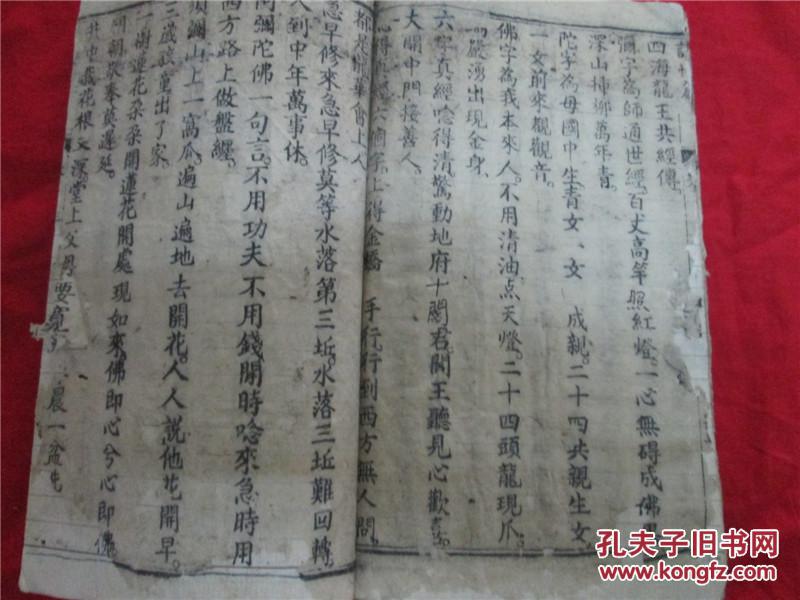 四海龍王共經傳
彌字為師通世經百丈高竿照紅燈一心無碍成佛
深山掃鄉萬年青
陀字為母國中生青女、女 成親。二十四共親生女
一女前來觀觀音。
佛字為我本來人。不用清油点天燈。二十四頭龍現爪。
嚴湧出現金身
六字真經唸得清驚動地府十閻君。閻王聽見心歡喜。
大開中門接善人。
上得金橋 手行。行到西方無人問
都是 華會上人
急早修來急早修莫等水落第三坵。水落三坵難回轉。
人到中年萬事休。
彌陀佛一句言。不用功夫不用錢閑時唸來急時用
西方路上做盤纏。
須彌山上一窩瓜。遍山遍地去開花。人人說他花開早。
三歲孩童出了家。
一樹蓮花朶朶開蓮花開處現如來。佛即心兮心即佛
朝 奉莫遲延。
花根 深堂上父母要 晨一
孔夫子旧书网
www.kongfz.com